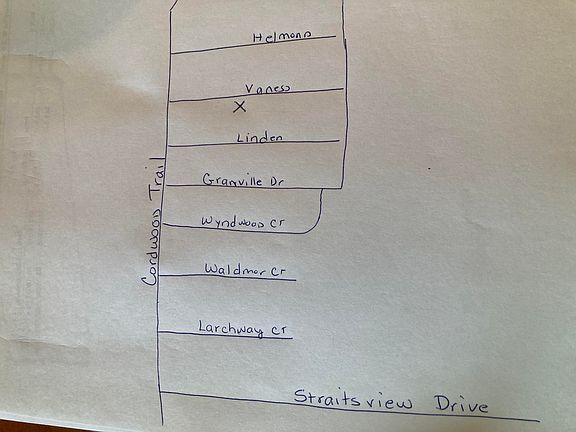 Helmond
Vaness
X
Linden
Granville Dr
Cordwood Trail
Wyndwood Cr
Waldmar Cr
Larchway Cr
Straitsview Drive